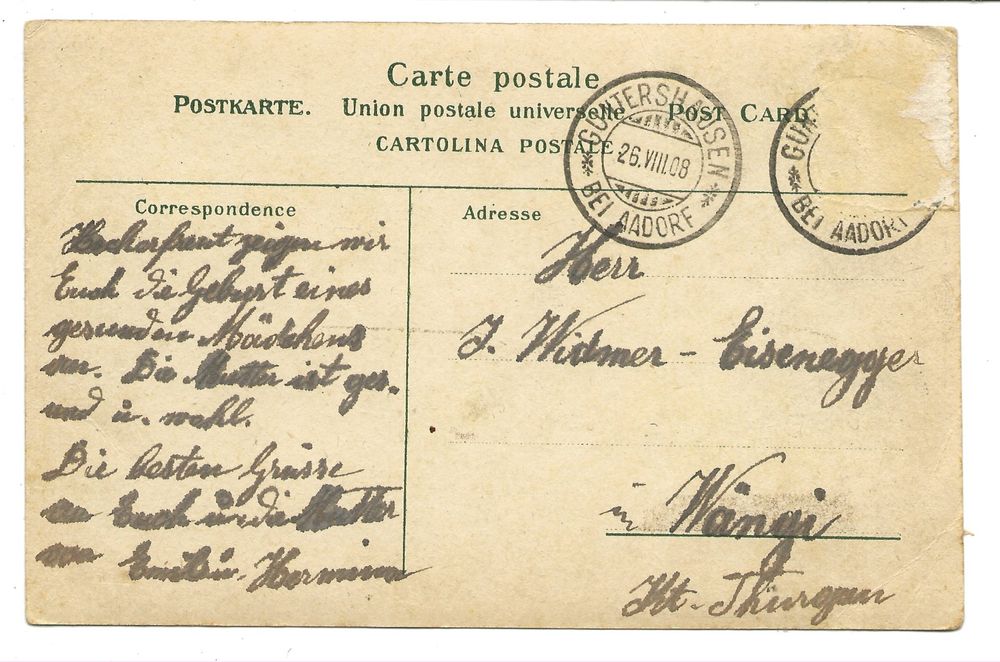 Carte postale
POSTKARTE. Union postale universelle. POST CARD.
CARTOLINA POSTALE
GUNTERSHAUSEN
26.VIII.08
BEI AADORF
GUNT
BEI AADORF
Correspondence
Hocherfreut zeigen wir
Euch die Geburt eines
gesunden Mädchens
an. Die Mutter ist ges-
und u. wohl.
Die besten Grüsse
an Euch u die Mutter
von Emil u. Hermine
Adresse
Herr
J. Widmer - Eisenegger
in Wängi
Kt. Thurgau